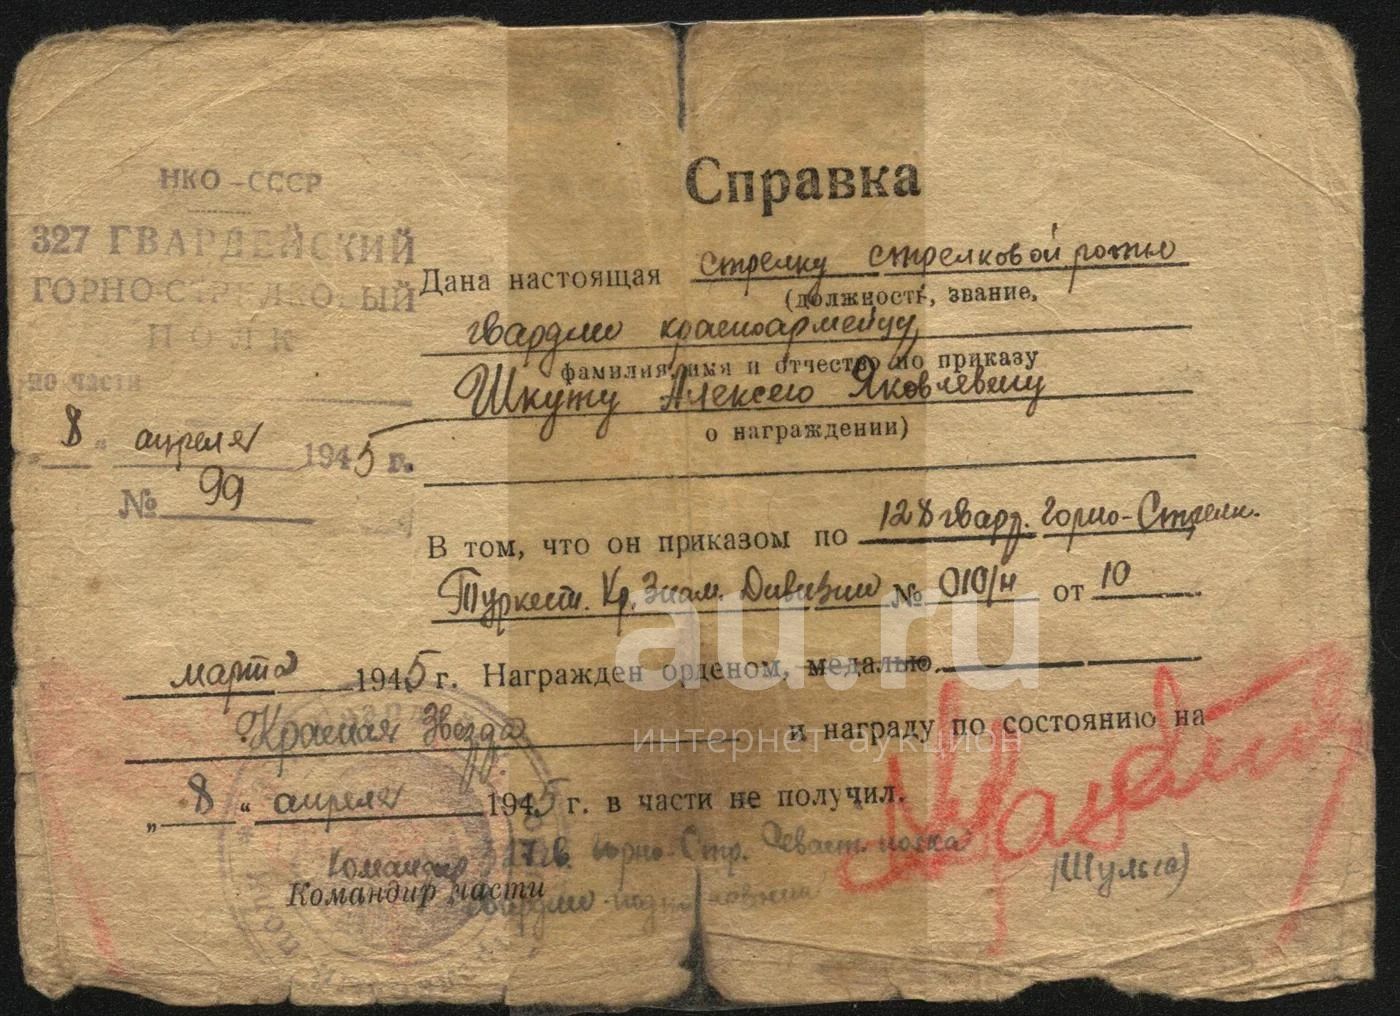 НКО - СССР
327 ГВАРДЕЙСКИЙ
ГОРНО-СТРЕЛКОВЫЙ
ПОЛК
по части
"8" апреля 1945 г.
№ 99
Справка
Дана настоящая стрелку стрелковой роты
(должность, звание,
гвардии красноармейцу
фамилия, имя и отчество по приказу
Шкуту Алексею Яковлевичу
о награждении)
В том, что он приказом по 128 гвард. Горно-Стрелк.
Туркест. Кр. Знам. Дивизии № 010/н от 10
марта 1945 г. Награжден орденом, медалью
Красная Звезда и награду по состоянию на
"8" апреля 1945 г. в части не получил.
Командир 327 гв. горно-Стр. Севаст. полка
Командир части
гвардии подполковник
(Шульга)
au.ru
интернет аукцион